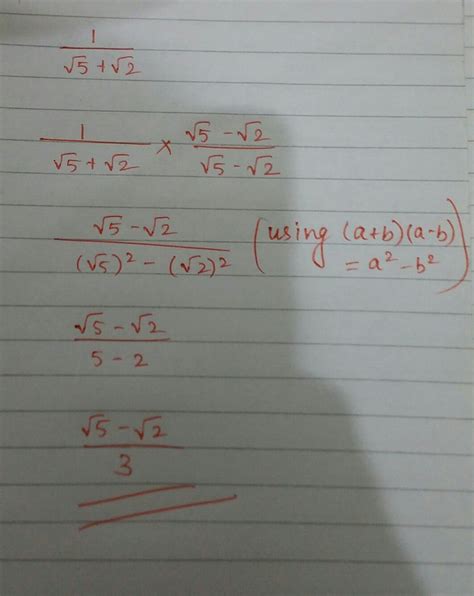 1/(√5 + √2)
1/(√5 + √2) × (√5 - √2)/(√5 - √2)
(√5 - √2)/((√5)² - (√2)²) (using (a+b)(a-b) = a² - b²)
(√5 - √2)/(5 - 2)
(√5 - √2)/3